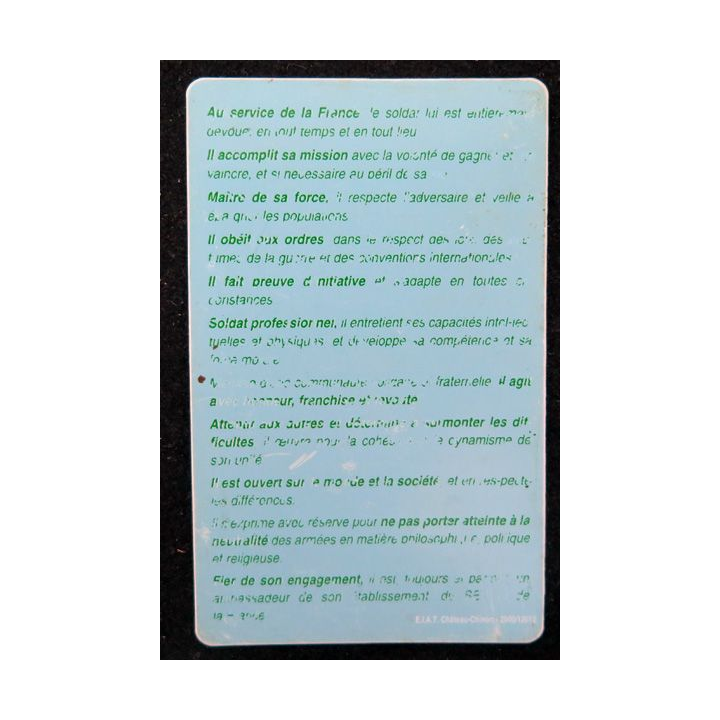 Au service de la France le soldat lui est entièrement
dévoué, en tout temps et en tout lieu
Il accomplit sa mission avec la volonté de gagner et
vaincre, et si nécessaire au péril de sa
Maître de sa force, il respecte l'adversaire et veille à
les populations
Il obéit aux ordres, dans le respect des lois, des
de la guerre et des conventions internationales
Il fait preuve d'initiative et s'adapte en toutes
constances
Soldat professionnel, il entretient ses capacités intellec
tuelles et physiques, et développe sa compétence et sa
force morale
communauté fraternelle il agit
avec honneur, franchise et loyauté
Attentif aux autres et déterminé à surmonter les dif
ficultés il œuvre pour la cohésion le dynamisme de
son unité
Il est ouvert sur le monde et la société, et en respecte
les différences.
Il s'exprime avec réserve pour ne pas porter atteinte à la
neutralité des armées en matière philosophique, politique
et religieuse.
Fier de son engagement, il est, toujours et
ambassadeur de son établissement de de
la
E.I.A.T. Château-Chinon